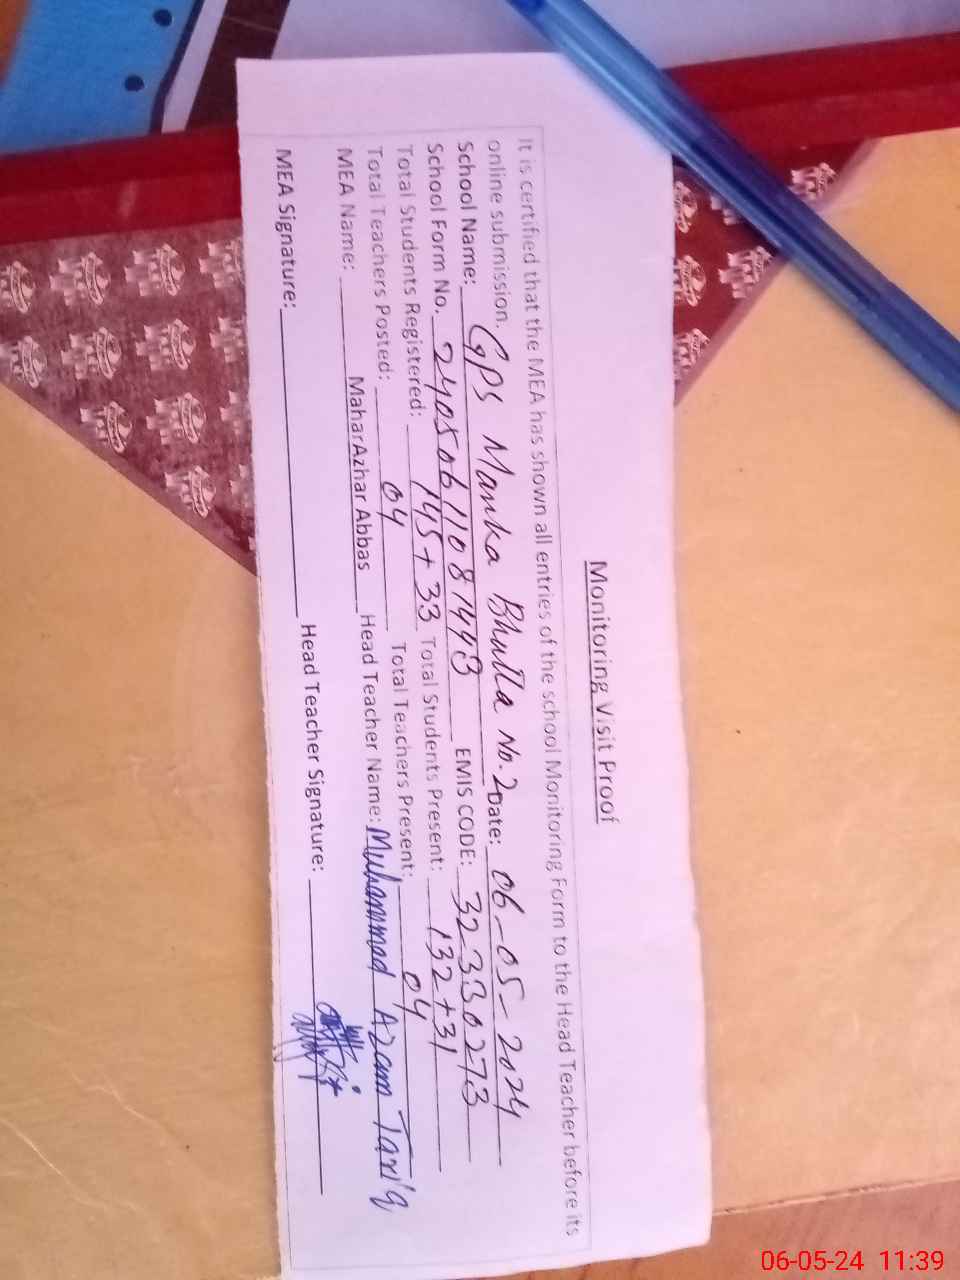 Monitoring Visit Proof
It is certified that the MEA has shown all entries of the school Monitoring Form to the Head Teacher before its
online submission.
School Name: GPS Manka Bhutta No.2 Date: 06-05-2024
School Form No. 24050611081443 EMIS CODE: 32330273
Total Students Registered: 145+33 Total Students Present: 132+31
Total Teachers Posted: 04 Total Teachers Present: 04
MEA Name: Mahar Azhar Abbas Head Teacher Name: Muhammad Azam Tariq
MEA Signature: Head Teacher Signature:
06-05-24 11:39